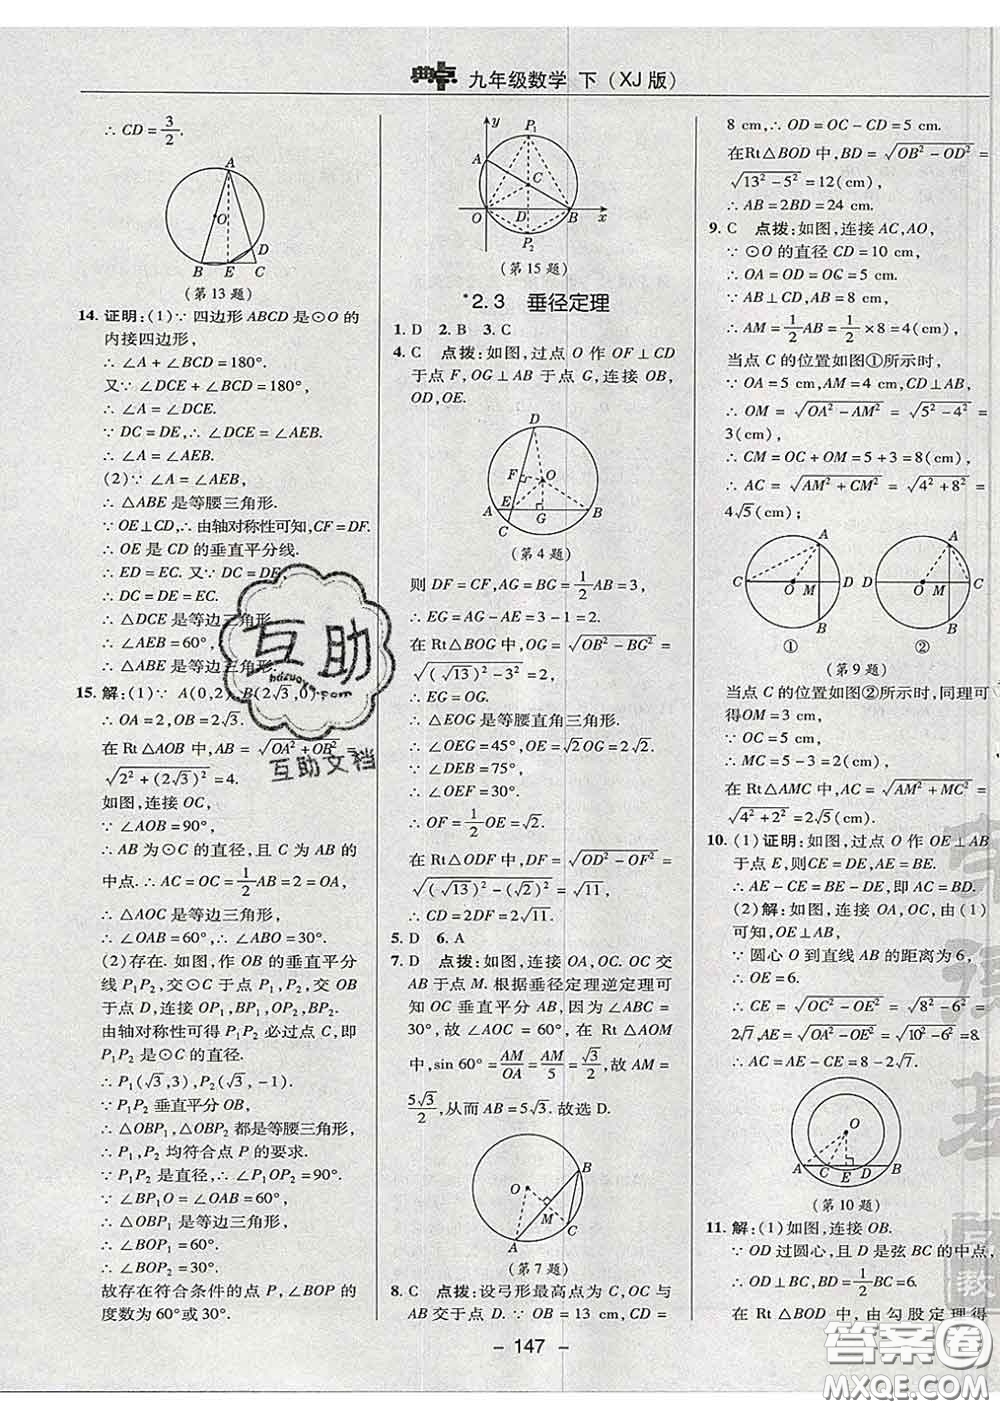 典点 九年级数学 下(XJ版)
∴ CD = 3/2.
A
O
D
B E C
(第13题)
14. 证明:(1)∵ 四边形 ABCD 是⊙O 的
内接四边形,
∴ ∠A + ∠BCD = 180°.
又∵ ∠DCE + ∠BCD = 180°,
∴ ∠A = ∠DCE.
∵ DC = DE, ∴ ∠DCE = ∠AEB.
∴ ∠A = ∠AEB.
(2)∵ ∠A = ∠AEB,
∴ △ABE 是等腰三角形.
∵ OE⊥CD, ∴ 由轴对称性可知,CF = DF.
∴ OE 是 CD 的垂直平分线.
∴ ED = EC. 又∵ DC = DE,
∴ DC = DE = EC.
∴ △DCE 是等边三角形.
∴ ∠AEB = 60°,
∴ △ABE 是等边三角形.
15. 解:(1)∵ A(0,2), B(2√3,0),
∴ OA = 2, OB = 2√3.
在 Rt△AOB 中, AB = √(OA² + OB²) =
√(2² + (2√3)²) = 4.
如图,连接 OC,
∵ ∠AOB = 90°,
∴ AB 为⊙C 的直径,且 C 为 AB 的
中点. ∴ AC = OC = 1/2 AB = 2 = OA,
∴ △AOC 是等边三角形,
∴ ∠OAB = 60°, ∴ ∠ABO = 30°.
(2)存在. 如图,作 OB 的垂直平分
线 P₁P₂,交⊙C 于点 P₁,P₂,交 OB
于点 D,连接 OP₁,BP₁,OP₂,BP₂.
由轴对称性可得 P₁P₂ 必过点 C,即
P₁P₂ 是⊙C 的直径.
∴ P₁(√3,3),P₂(√3,-1).
∵ P₁P₂ 垂直平分 OB,
∴ △OBP₁,△OBP₂ 都是等腰三角形,
∴ P₁,P₂ 均符合点 P 的要求.
∵ P₁P₂ 是直径,∴ ∠P₁OP₂ = 90°.
∵ ∠BP₁O = ∠OAB = 60°,
∴ △OBP₁ 是等边三角形.
∴ ∠BOP₁ = 60°,
∴ ∠BOP₂ = 30°.
故存在符合条件的点 P, ∠BOP 的
度数为 60°或 30°.
y
P₁
A
C
O D B x
P₂
(第15题)
*2.3 垂径定理
1. D 2. B 3. C
4. C 点拨:如图,过点 O 作 OF⊥CD
于点 F,OG⊥AB 于点 G,连接 OB,
OD,OE.
D
F O
E
A G B
C
(第4题)
则 DF = CF, AG = BG = 1/2 AB = 3,
∴ EG = AG - AE = 3 - 1 = 2.
在 Rt△BOG 中, OG = √(OB² - BG²) =
√((√13)² - 3²) = 2,
∴ EG = OG.
∴ △EOG 是等腰直角三角形.
∴ ∠OEG = 45°, OE = √2 OG = 2√2.
∵ ∠DEB = 75°,
∴ ∠OEF = 30°.
∴ OF = 1/2 OE = √2.
在 Rt△ODF 中, DF = √(OD² - OF²) =
√((√13)² - (√2)²) = √11,
∴ CD = 2DF = 2√11.
5. D 6. A
7. D 点拨:如图,连接 OA,OC. OC 交
AB 于点 M. 根据垂径定理逆定理可
知 OC 垂直平分 AB, 因为 ∠ABC =
30°,故 ∠AOC = 60°, 在 Rt△AOM
中,sin 60° = AM/OA = AM/5 = √3/2,故 AM =
5√3/2,从而 AB = 5√3. 故选 D.
B
O
M
C
A
(第7题)
8. C 点拨:设弓形最高点为 C,OC 与
AB 交于点 D. ∵ OB = 13 cm,CD =
8 cm,∴ OD = OC - CD = 5 cm.
在Rt△BOD 中,BD = √(OB² - OD²) =
√(13² - 5²) = 12(cm),
∴ AB = 2BD = 24 cm.
9. C 点拨:如图,连接 AC,AO,
∵ ⊙O 的直径 CD = 10 cm,
∴ OA = OD = OC = 5 cm.
∵ AB⊥CD,AB = 8 cm,
∴ AM = 1/2 AB = 1/2 × 8 = 4(cm),
当点 C 的位置如图①所示时,
∵ OA = 5 cm,AM = 4 cm,CD⊥AB,
∴ OM = √(OA² - AM²) = √(5² - 4²) =
3(cm),
∴ CM = OC + OM = 5 + 3 = 8(cm),
∴ AC = √(AM² + CM²) = √(4² + 8²) =
4√5(cm);
A
C O M D
B
①
A
D O M C
B
②
(第9题)
当点 C 的位置如图②所示时,同理可
得OM = 3 cm,
∵ OC = 5 cm,
∴ MC = 5 - 3 = 2(cm),
在 Rt△AMC 中, AC = √(AM² + MC²) =
√(4² + 2²) = 2√5(cm).
10. (1)证明:如图,过点 O 作 OE⊥AB
于点 E,则CE = DE,AE = BE.
∴ AE - CE = BE - DE,即 AC = BD.
(2)解:如图,连接 OA,OC,由(1)
可知,OE⊥AB,
∵ 圆心 O 到直线 AB 的距离为 6,
∴ OE = 6.
∴ CE = √(OC² - OE²) = √(8² - 6²) =
2√7,AE = √(OA² - OE²) = √(10² - 6²) = 8.
∴ AC = AE - CE = 8 - 2√7.
O
A C E D B
(第10题)
11. 解:(1)如图,连接 OB.
∵ OD 过圆心,且 D 是弦 BC 的中点,
∴ OD⊥BC,BD = 1/2 BC = 6.
在 Rt△BOD 中, 由勾股定理得
- 147 -
互助
hdzuoye.com
互助文档
答案圈
MXQE.COM